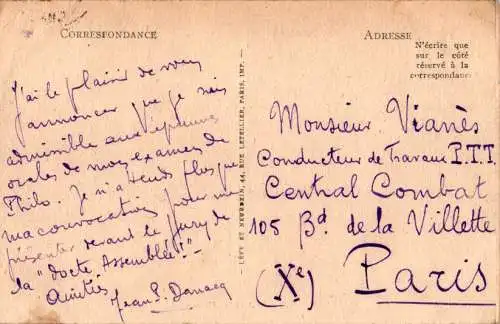 CORRESPONDANCE
J'ai le plaisir de vous
annoncer que je suis
admissible aux épreuves
orales de mes examens de
Philo. Je n'attends plus que
ma convocation pour me
présenter devant le jury de
la "docte Assemblée!"
Amitiés
Jean
LÉVY ET NEURDEIN, 44, RUE LETELLIER, PARIS, IMP.
ADRESSE
N'écrire que
sur le côté
réservé à la
correspondance
Monsieur Vianès
Conducteur de Travaux P.T.T.
Central Combat
105 Bd. de la Villette
(Xe) Paris